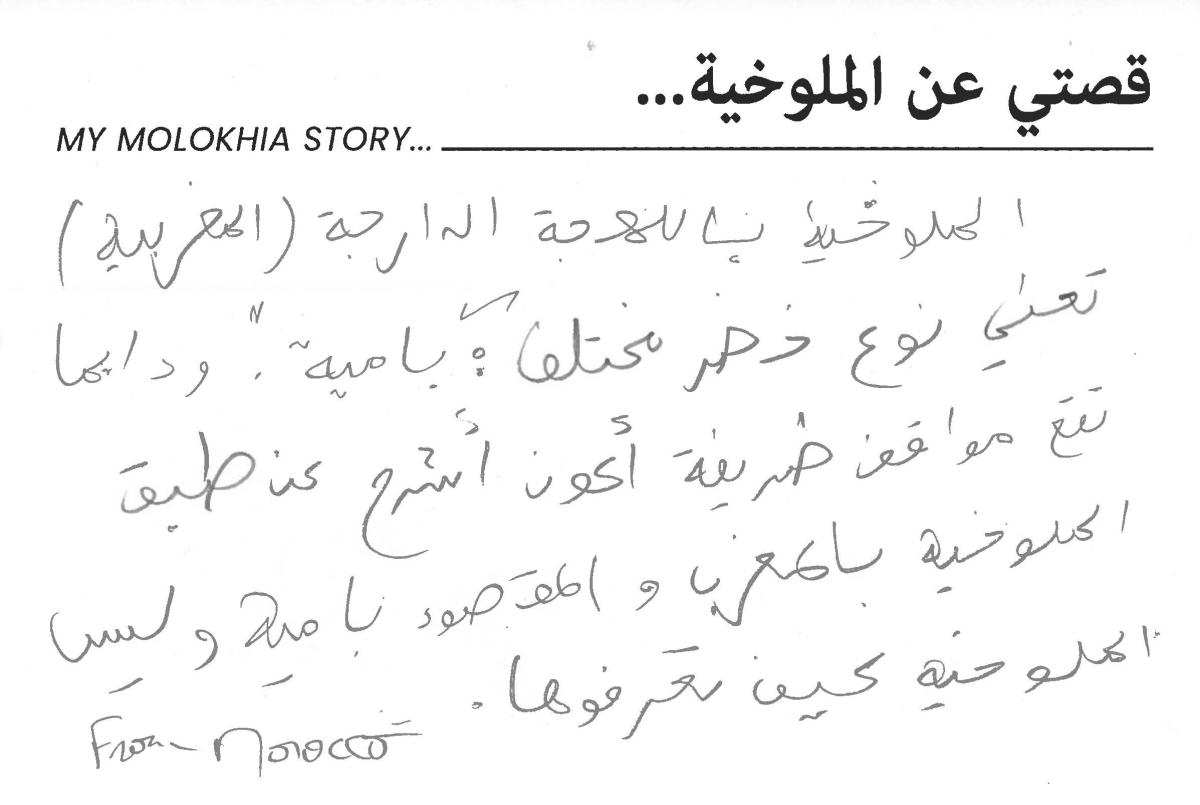 قصتي عن الملوخية...
MY MOLOKHIA STORY...
الملوخية باللهجة الدارجة (المغربية)
تعني نوع خضر مختلف: "بامية". ودايما
تقع مواقف طريفة أكون أشرح عن طبق
الملوخية بالمغرب والمقصود بامية وليس
الملوخية كيف تعرفوها.
From Morocco